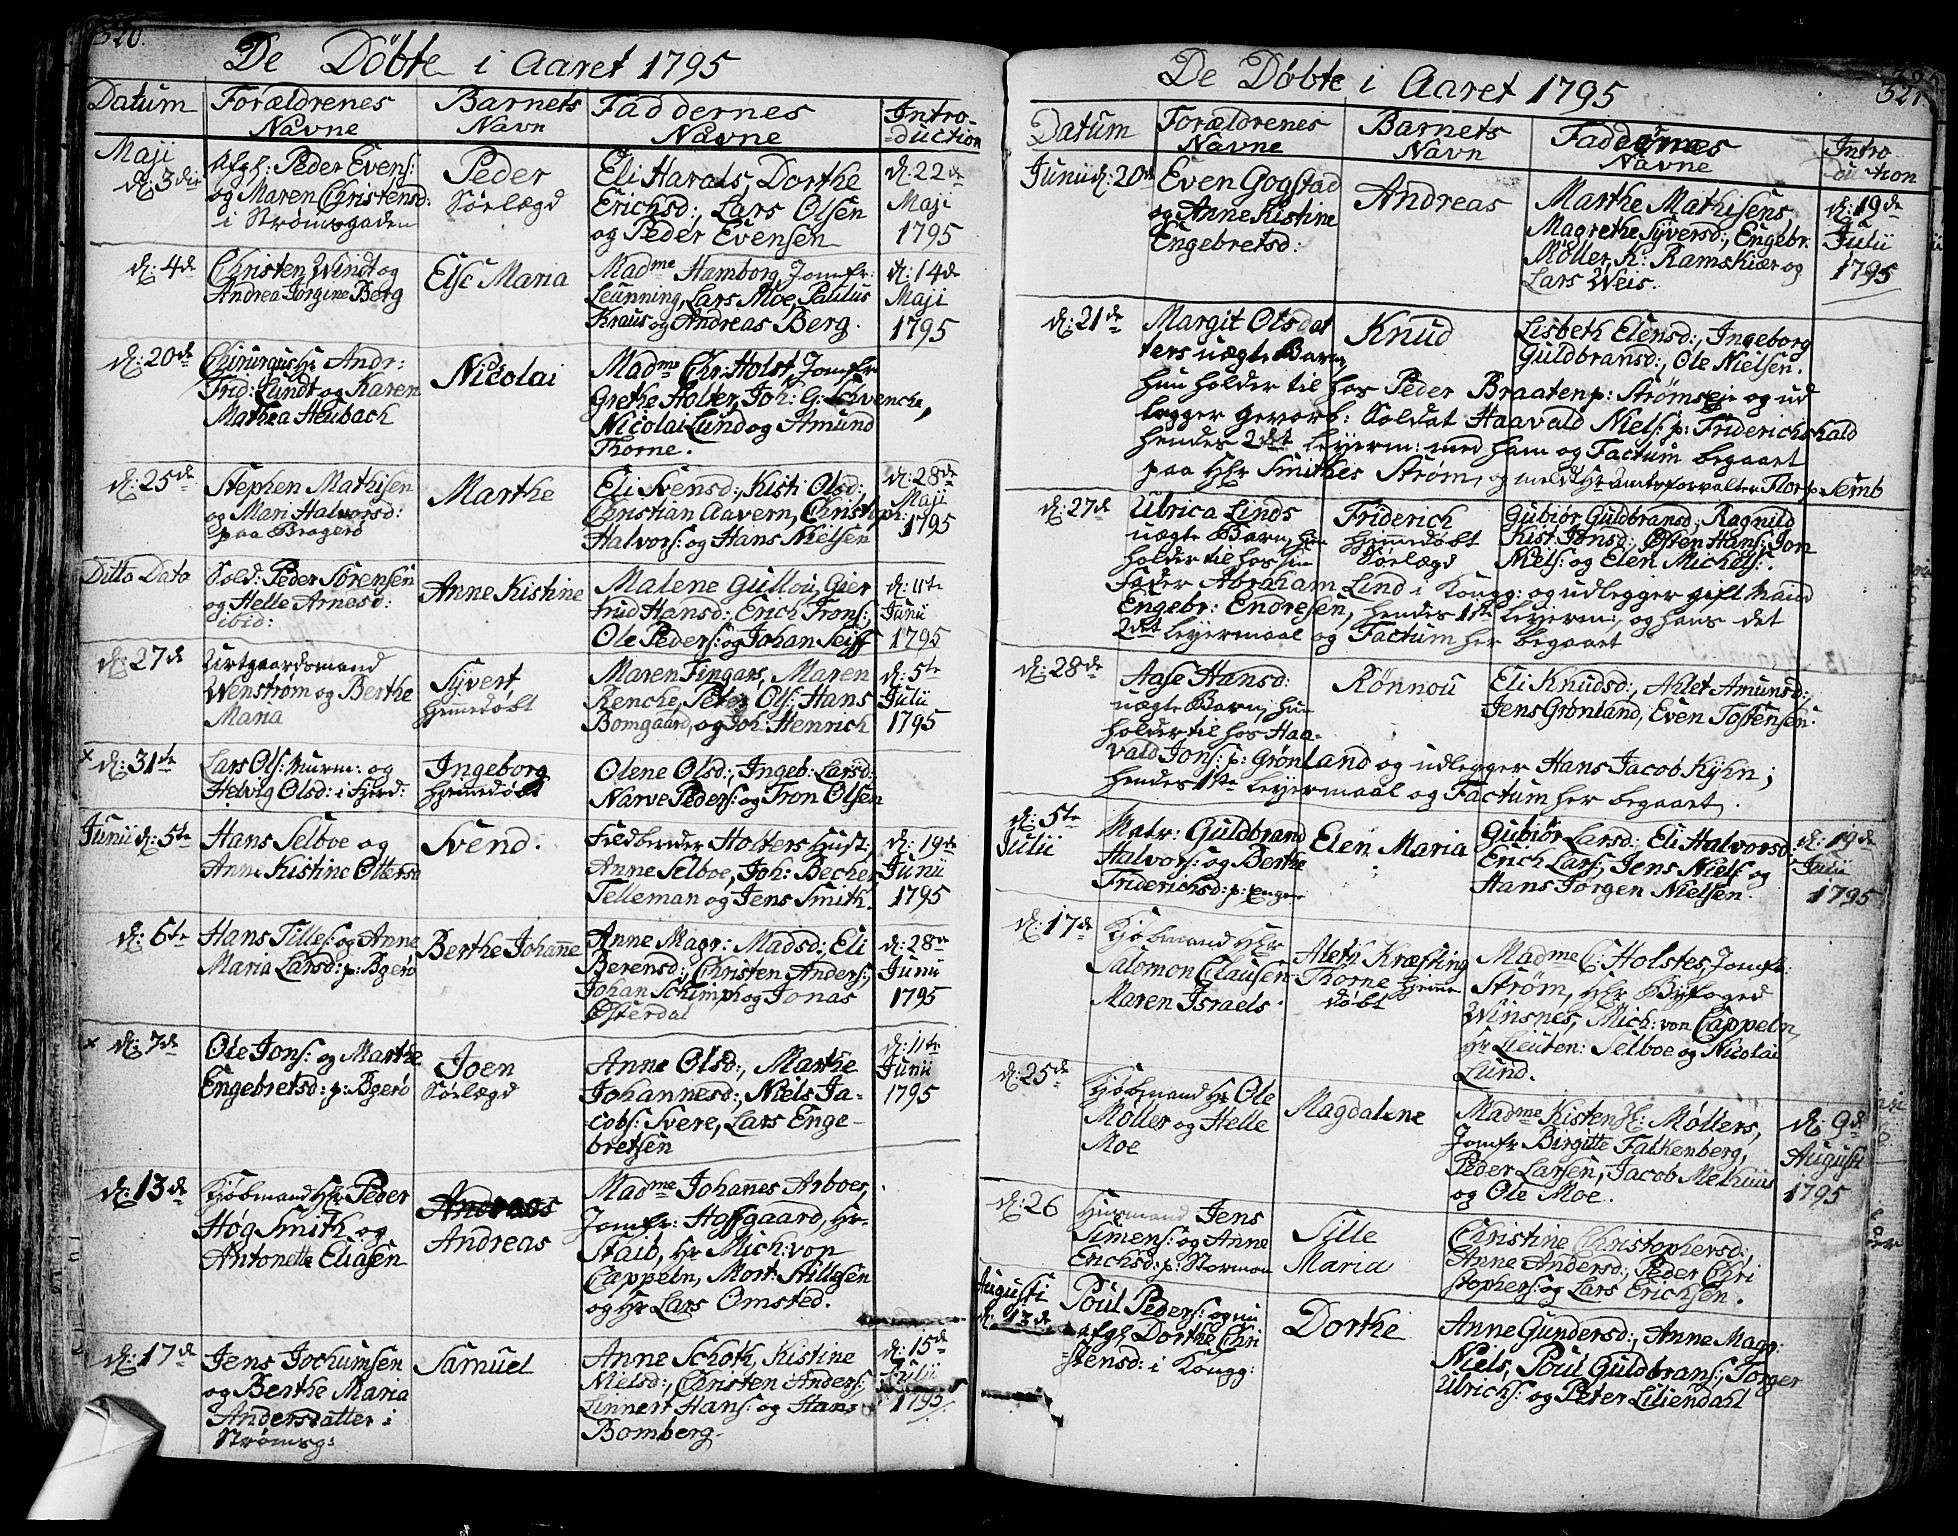 320.
De Döbte i Aaret 1795
Datum
Forældrenes
Navne
Barnets
Navn
Faddernes
Navne
Intro-
=duction
Maji
d: 3die
Afgl: Peder Evens:
og Maren Christensd:
i Strømsgaden
Peder
Söelægd
Eli Harals, Dorthe
Erichsd:, Lars Olsen
og Peder Evensen
d: 22de
Maji
1795
d: 4de
Christen Windt og
Andrea Jörgine Berg
Else Maria
Madme Hamborg, Jomfr:
Leunning, Lars Moe, Paulus
Kraus og Andreas Berg.
d: 14de
Maji
1795
d: 20de
Chirurgus Hr Andr:
Frid: Lundt og Karen
Mathea Heubach
Nicolai
Madme Chr: Holst, Jomfr
Grethe Holter, Joh: G: Schvencke,
Nicolai Lund og Amund
Thorne.
d: 25de
Stephen Mathisen
og Mari Halvorsd:
paa Bragerö
Marthe
Eli Svensd:, Kisti Olsd:,
Christian Aavern, Christoph:
Halvors: og Hans Nielsen
d: 28de
Maji
1795
Ditto Dato
Sold: Peder Sörensen
og Helle Arnesd:
ibid:
Anne Kistine
Malene Gullou, Gier
trud Hansd:, Erich Trons:,
Ole Peders: og Johan Seiff
d: 11te
Junii
1795
d: 27de
Urtgaardsmand
Wenström og Berthe
Maria
Syvert
hjemedöbt
Maren Fingars, Maren
Renche, Peter Ols: Hans
Bomgaard, og Joh: Henrich
d: 5te
Julii
1795
x d: 31te
Lars Ols: Murm: og
Helvig Olsd: i Fjerd:
Ingeborg
hjemedöbt
Olene Olsd:, Ingeb: Larsd:
Narve Peders: og Tron Olsen
Junii d: 5te
Hans Selboe og
Anne Kistine Ottersd
Svend.
Feldbereder Holters Hust:
Anne Selboe, Joh: Becher
Telleman og Jens Smith.
d: 19de
Junii
1795
d: 6te
Hans Tilles: og Anne
Maria Larsd: p: Bgerö
Berthe Johanne
Anne Magr: Madsd: Eli
Berensd:, Christen Anders:,
Johan Schimph og Jonas
Österdal
d: 28de
Junii
1795
x d: 7de
Ole Jons: og Marthe
Engebretsd: p: Bgerö
Joen
Söelægd
Anne Olsd:, Marthe
Johannesd:, Niels Ja-
cobs: Svere, Lars Enge-
bretsen
d: 11te
Junii
1795
d: 13de
Kjöbmand Hr Peder
Hög Smith og
Antonette Eliasen
Andreas
Andreas
Madme Johannes Arboes,
Jomfr: Hoffgaard, Hr
Staib, Hr Mich: von
Cappeln, Mort: Stillesen
og Hr Lars Omsted.
d: 17de
Jens Jochumsen
og Berthe Maria
Andersdatter i
Strömsg:
Samuel
Anne Schoth, Kistine
Nielsd:, Christen Anders:,
Linnert Hans: og Hans
Bomberg.
d: 15de
Julii
1795
321.
De Döbte i Aaret 1795
Datum
Forældrenes
Navne
Barnets
Navn
Faddernes
Navne
Intro
duction
Junii d: 20de
Even Gogstad
og Anne Kistine
Engebretsd:
Andreas
Marthe Mathisens
Magrethe Syversd:, Engebr.
Möller, K: Ramskiær og
Lars Weis.
d: 19de
Julii
1795
d: 21de
Margit Olsdat
ters uægte Barn,
Knud
Lisbeth Elensd:, Ingeborg
Guldbransd:, Ole Nielsen.
hun holder til hos Peder Braaten p: Strömseje og ud
lægger gevorb: Soldat Haavald Niels: p: Friderichshald
hendes 2det leyerm: med ham og Factum begaaet
paa Hr Smithes Ström, og meldt Hr Amtsforvalter Flor p: Semb
d: 27de
Ulrica Linds
uægte Barn, hun
holder til hos sin
Friderich
hjemmedöbt
Söelægd
Gubiör Guldbransd:, Ragnild
Kist: Jonsd:, Östen Hans:, Jon
Niels: og Elen Michels:.
Fader Abraham Lind i Kongg: og udlegger gift Mand
Engebr: Endresen, hendes 1ste leyerm:, og hans det
2det leyermaal og Factum her begaaet
d: 28de
Aase Hansd:
uægte Barn, hun
holder til hos Haa-
Rönnou
Eli Knudsd:, Ahlet Amunsd:,
Jens Grönland, Even Tostensen:
vald Jons: p: Grönland og udlegger Hans Jacob Kyhn;
hendes 1ste leyermaal og Factum her begaaet.
d: 5te
Julii
Matr: Guldbrand
Halvors: og Berthe
Friderichsd: p: Engen
Elen Maria
Gubiör Larsd: Eli Halvorsd:
Erich Lars:, Jens Niels: og
Hans Jörgen Nielsen.
d: 19de
Julii
1795
d: 17de
Kjöbmand Hr
Salomon Clausen
Maren Israels.
Aleth Kræfting
Thorne hjemme
döbt
Madme C: Holstes, Jomfr:
Ström, Hr Byfoged
Winsnes, Mich: von Cappeln,
Hr Lieuten: Selboe og Nicolai
Lund.
d: 25de
Kjöbmand Hr Ole
Möller og Helle
Moe
Magdalene
Madme Kisten H: Möllers,
Jomfr Birgitte Falkenberg,
Peder Larsen, Jacob Methuus
og Ole Moe.
d: 9de
Augusti
1795
d: 26
Husmand Jens
Simens: og Anne
Erichsd: p: Stormoen
Sille
Maria
Christine Christophersd:,
Anne Andersd:, Peder Chri
stophers: og Lars Erichsen.
Augusti
d: 13de
Poul Peders: og nu
afgl. Dorthe Chri
stensd: i Kongg:
Dorthe
Anne Gundersd:, Anne Magr:
Niels, Poul Guldbrans:, Torger
Ulrichs: og Peter Liliendahl